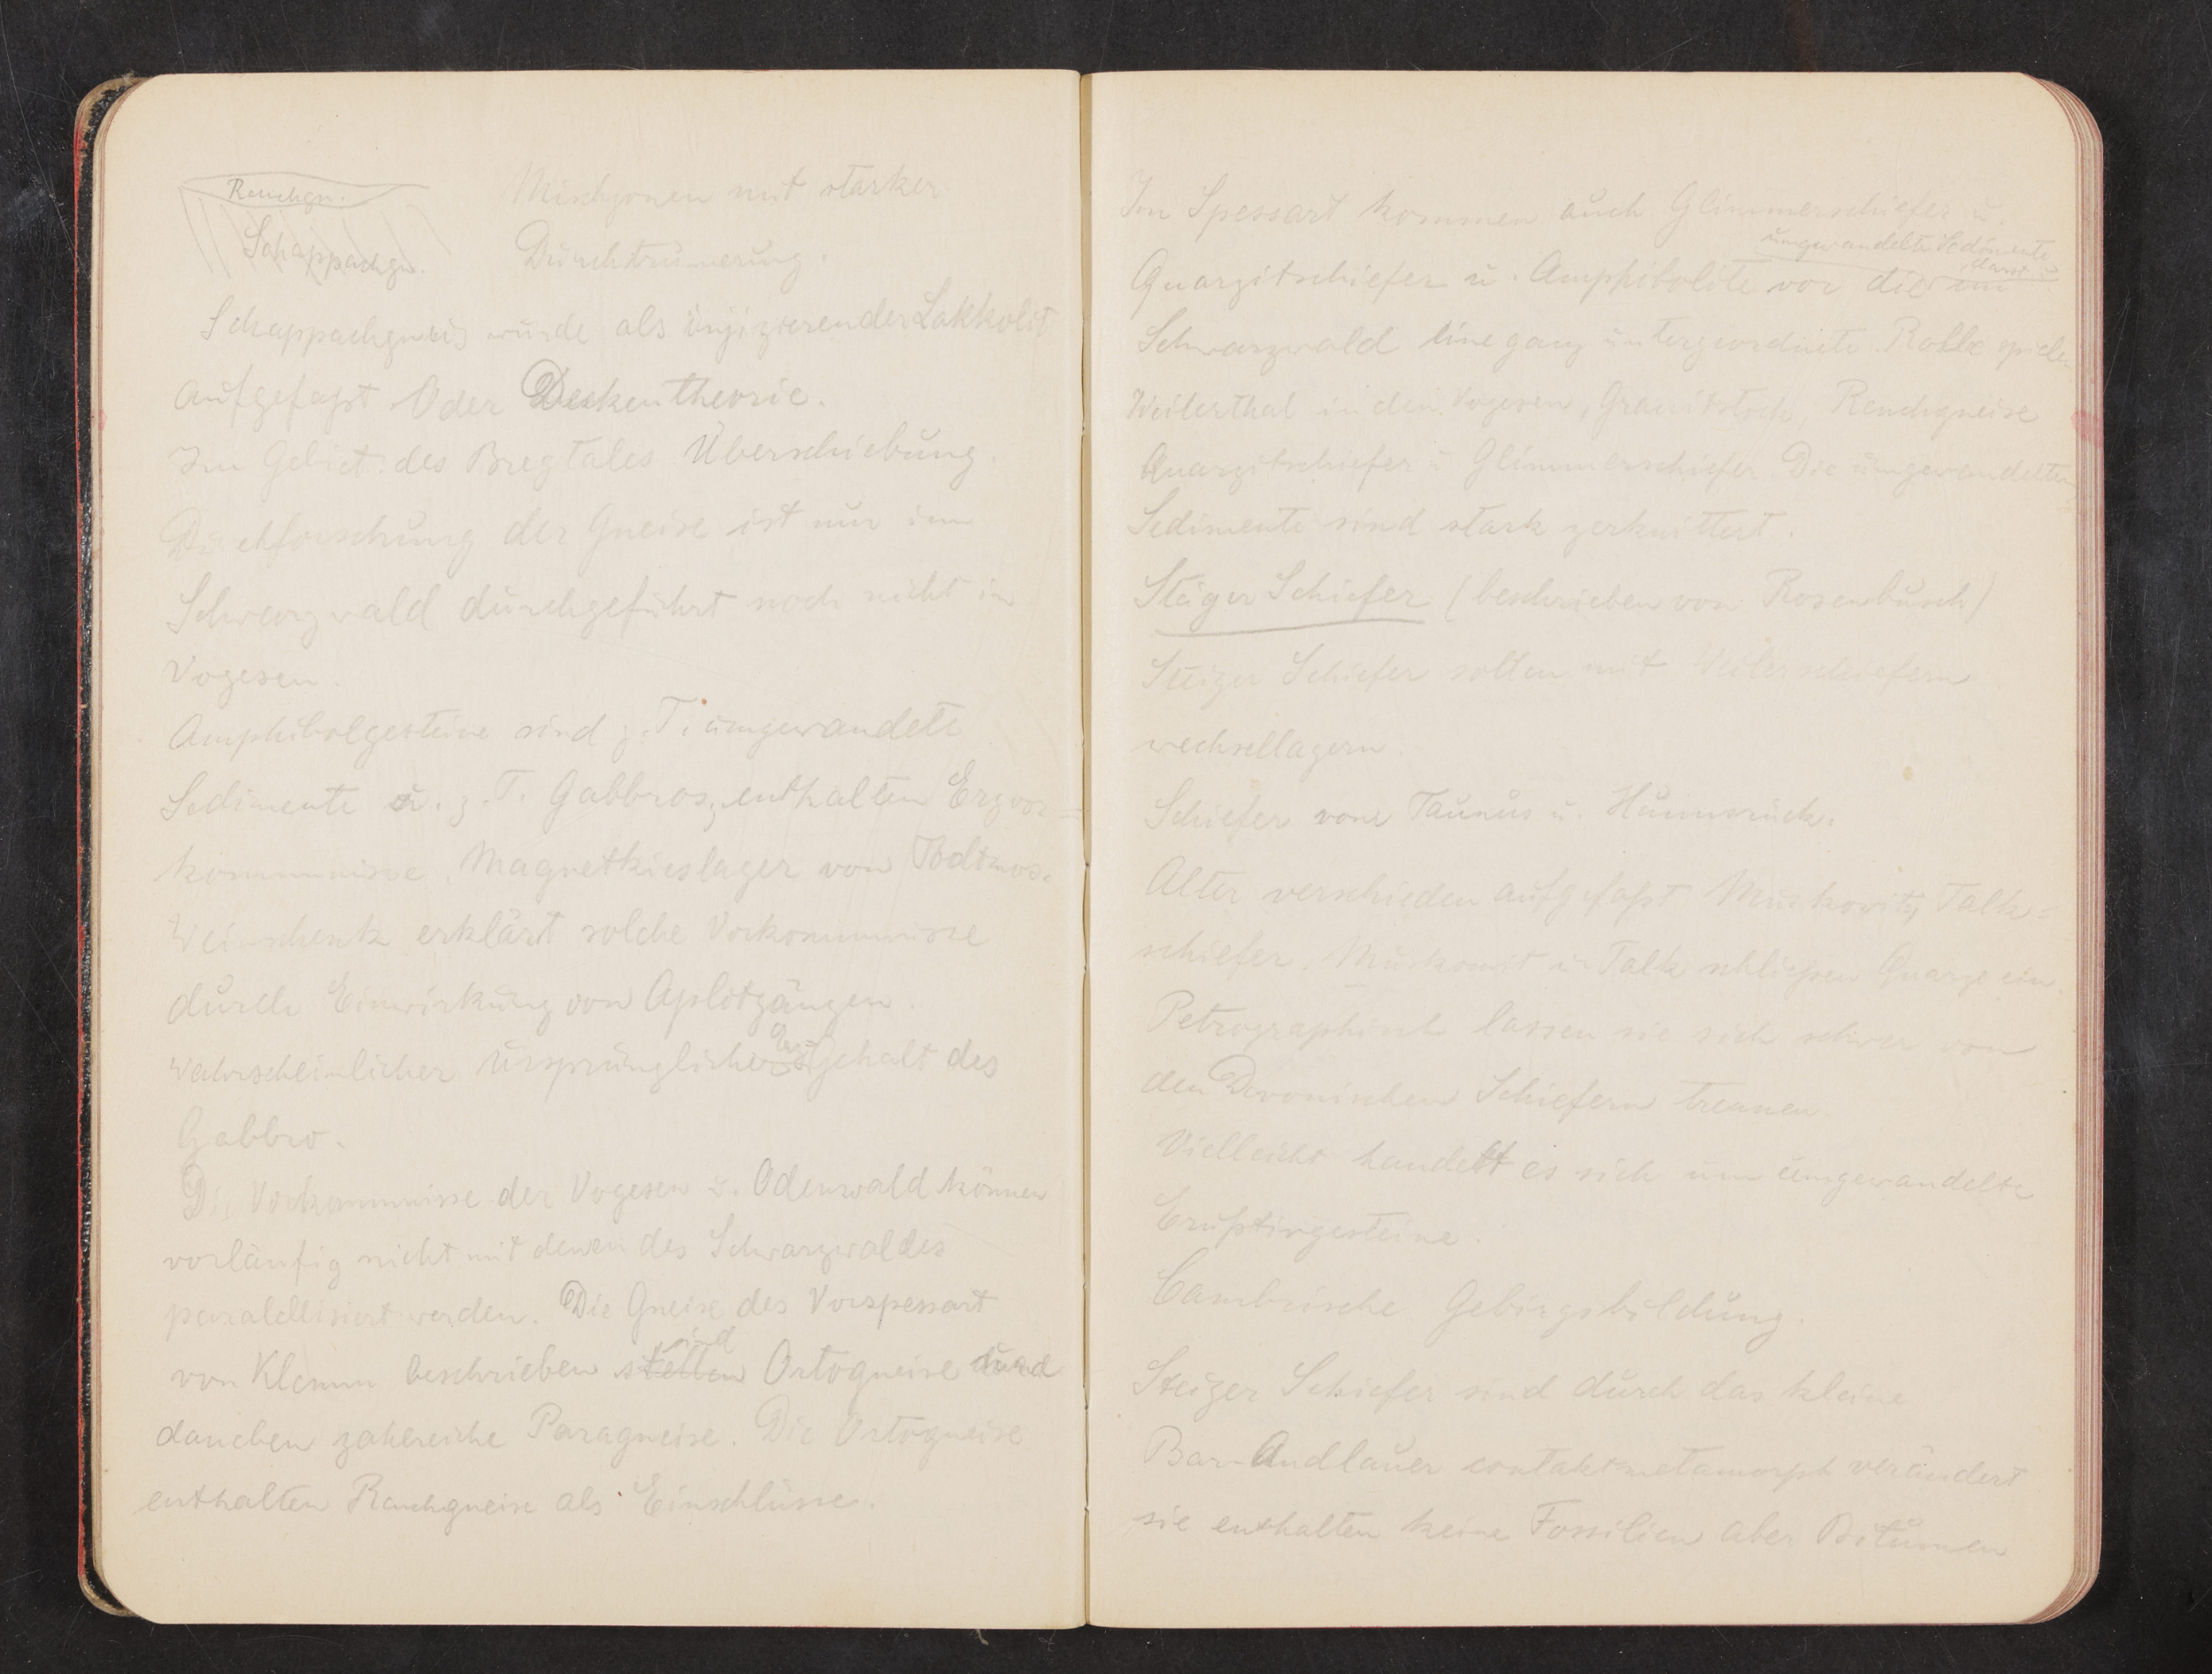 Renchgn.
Schappachgn.
Mischzonen mit starker
Durchtrümerung.
Schappachgneis wurde als injizierender Lakkolit
aufgefaßt Oder Deckentheorie.
Im Gebiet des Bregtales Überschiebung.
Duchforschung der Gneise ist nur im
Schwarzwald durchgeführt noch nicht in
Vogesen.
Amphibolgesteine sind z. T. umgewandelte
Sedimente u. z. T. Gabbros, enthalten Erzvor=
kommnisse. Magnetkieslager von Todtmos.
Weinschenk erklärt solche Vorkommnisse
durch Einwirkung von Aplitgängen.
Wahrscheinlicher ursprünglicher Erzgehalt des
Gabbro.
Die Vorkommnisse der Vogesen u. Odenwald können
vorläufig nicht mit denen des Schwarzwaldes
paralellisiert werden. Die Gneise des Vorspessart
von Klemm beschrieben stellen sind Ortogneise und
daneben zahlreiche Paragneise. Die Ortogneise
enthalten Renchgneise als Einschlüsse.
Im Spessart kommen auch Glimmerschiefer u.
umgewandelte Sedimente
darst. u.
Quarzitschiefer u. Amphibolite vor die im
Schwarzwald eine ganz untergeordnete Rolle spielen
Weilerthal in den Vogesen, Granitstock, Renchgneise
Quarzitschiefer u. Glimmerschiefer. Die umgewandelten
Sedimente sind stark zerknittert.
Steiger Schiefer (beschrieben von Rosenbusch)
Steiger Schiefer sollen mit Weilerschiefern
wechsellagern.
Schiefer vom Taunus u. Hunnsrück.
Alter verschieden aufgefaßt Muskovit, Talk=
schiefer. Muskovit u. Talk schließen Quarze ein.
Petrographisch lassen sie sich schwer von
den Devonischen Schiefern trennen.
Vielleicht handelt es sich um umgewandelte
Eruptivgesteine.
Cambrische Gebirgsbildung.
Steiger Schiefer sind durch das kleine
Barr-Andlauer contaktmetamorph verändert
sie enthalten keine Fossilien aber Bitumen